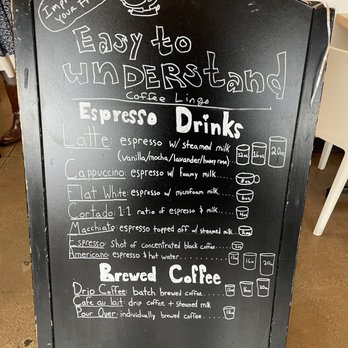 Easy to
understand
Coffee Lingo
Espresso Drinks
Latte: espresso w/ steamed milk
(vanilla/mocha/lavander/honey rose)
12oz 16oz 20oz
Cappuccino: espresso w/ foamy milk
Flat White: espresso w/ microfoam milk
Cortado: 1:1 ratio of espresso & milk
Macchiato: espresso topped off w/ steamed milk
Espresso: shot of concentrated black coffee
Americano: espresso & hot water
Brewed Coffee
Drip Coffee: batch brewed coffee
Cafe au lait: drip coffee + steamed milk
Pour Over: individually brewed coffee